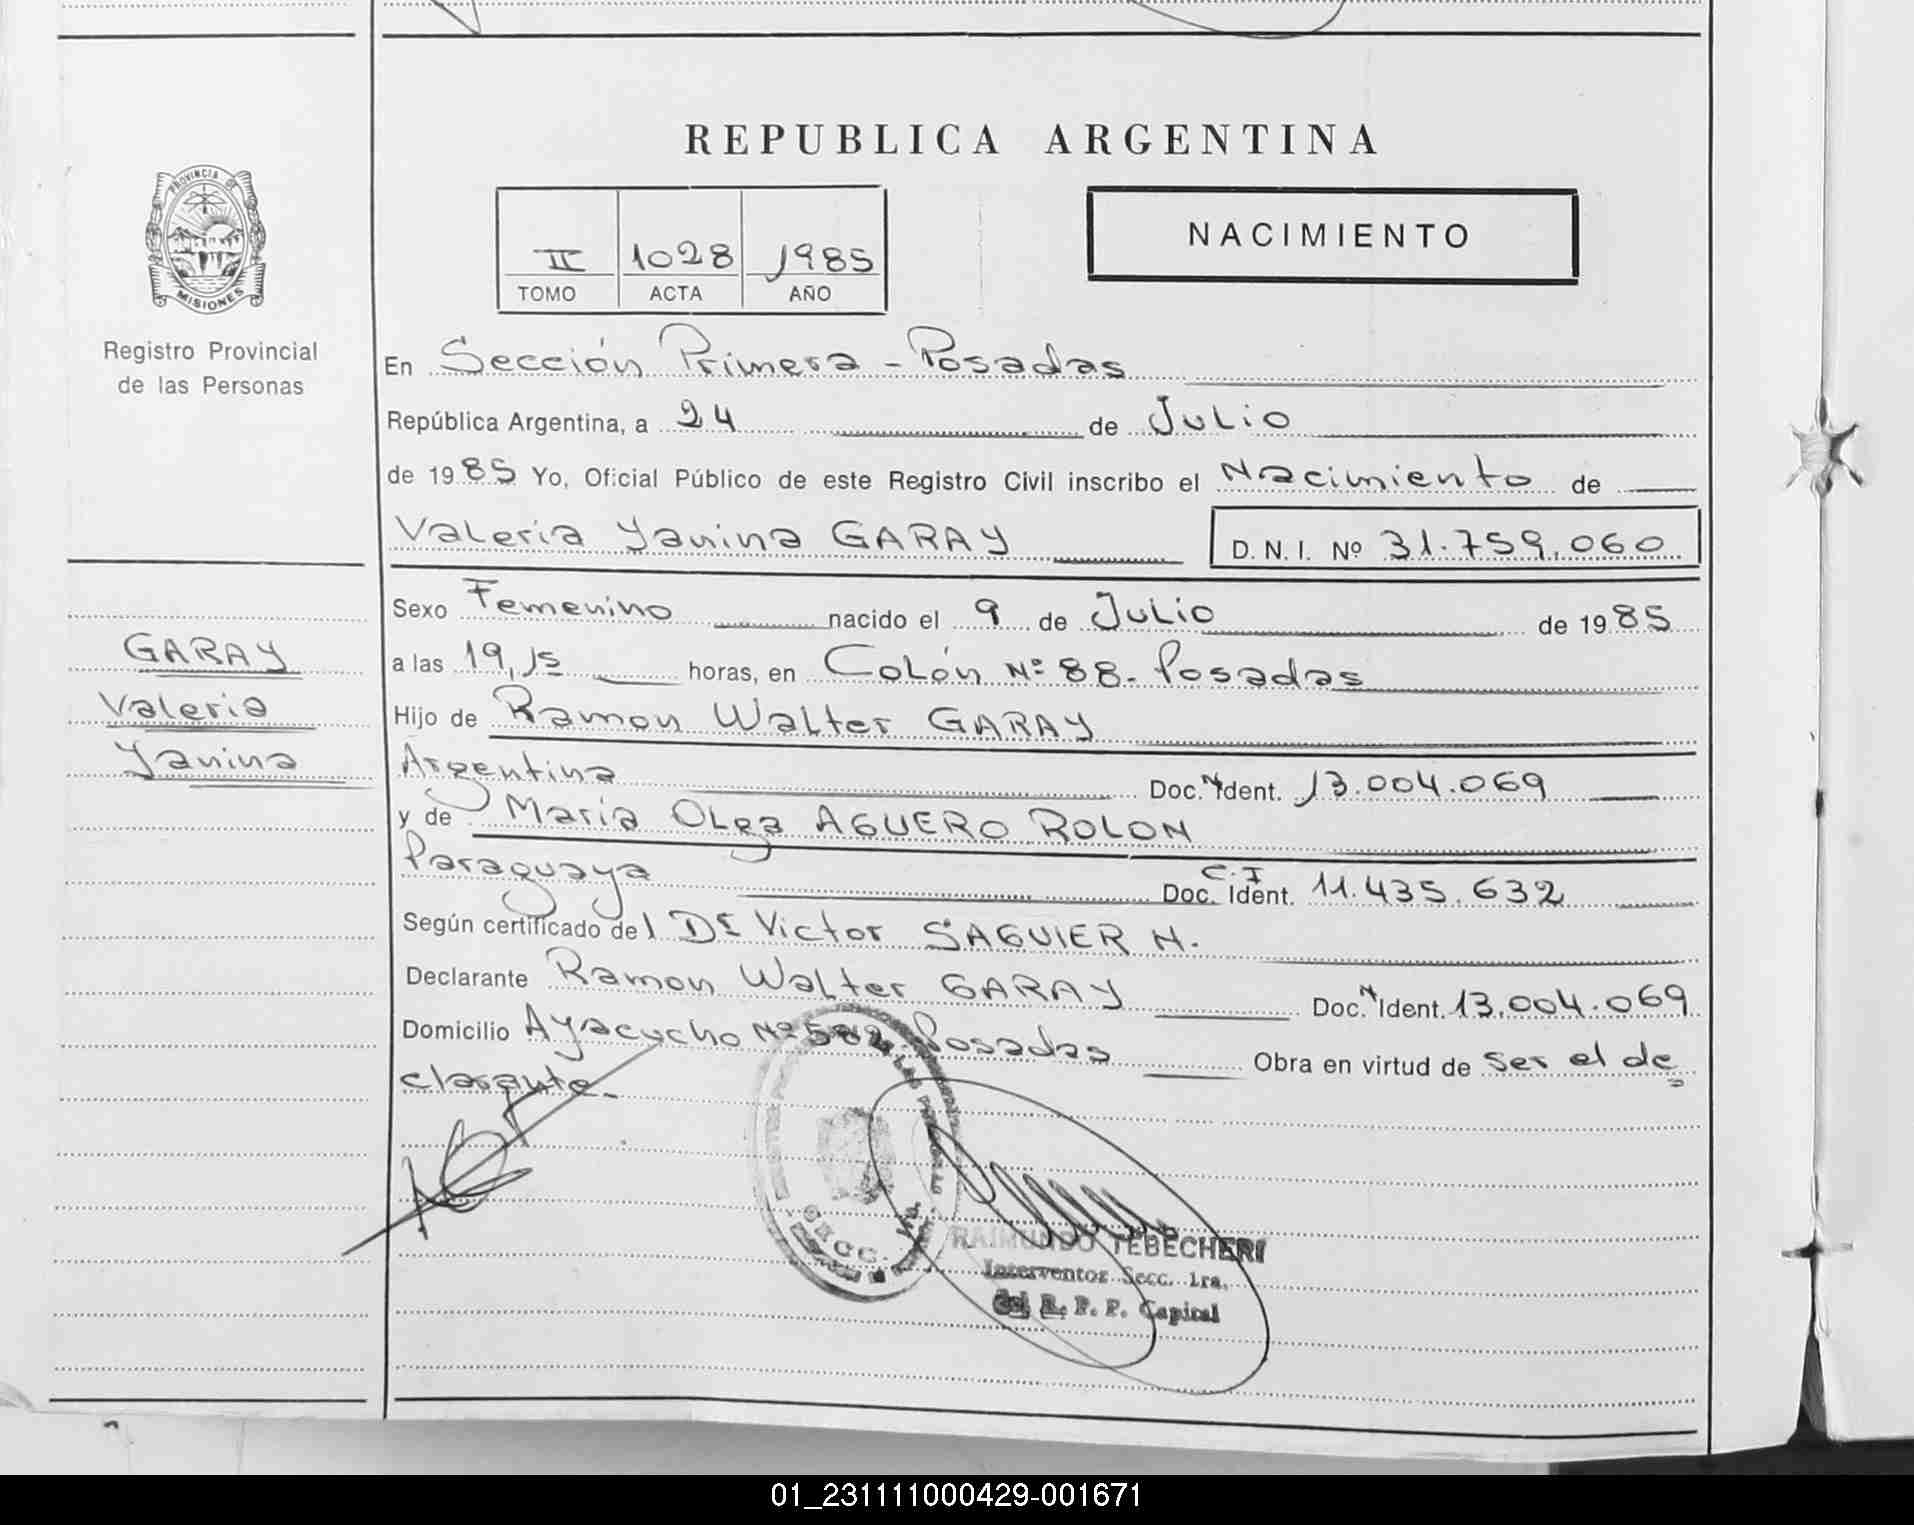 REPUBLICA ARGENTINA
PROVINCIA DE
MISIONES
Registro Provincial
de las Personas
II 1028 1985
TOMO ACTA AÑO
NACIMIENTO
En Sección Primera - Posadas
República Argentina, a 24 de Julio
de 1985 Yo, Oficial Público de este Registro Civil inscribo el Nacimiento de
Valeria Yanina GARAY D. N. I. Nº 31.759.060
Sexo Femenino nacido el 9 de Julio de 1985
GARAY
Valeria
Yanina
a las 19,15 horas, en Colón Nº 88. Posadas
Hijo de Ramon Walter GARAY
Argentina Doc. N Ident. 13.004.069
y de Maria Olga AGUERO ROLON
Paraguaya Doc. C.I Ident. 11.435.632
Según certificado del Dr Victor SAGUIER H.
Declarante Ramon Walter GARAY Doc. N Ident. 13.004.069
Domicilio Ayacucho Nº 582 Posadas Obra en virtud de ser el de
clarante.
SECC. 1ra.
RAIMUNDO TEBECHERI
Interventor Secc. 1ra.
del R. P. P. Capital
01_231111000429-001671